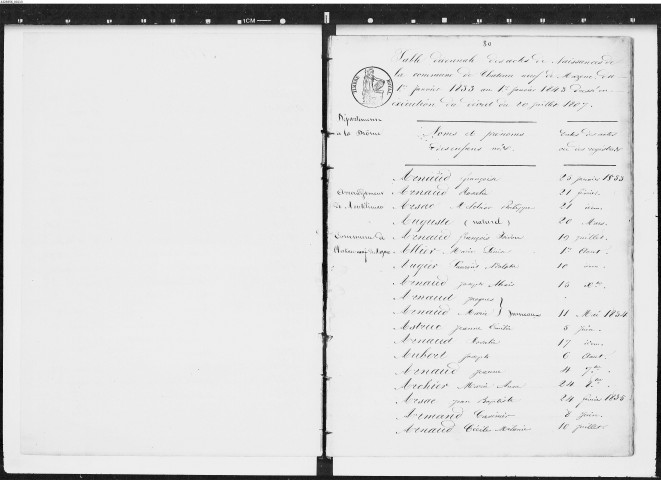 80
Table décennale des actes de Naissances de
la commune de Chateau neuf de Mazenc du
1er janvier 1833 au 1er janvier 1843 dressé en
exécution du décret du 20 juillet 1807.
TIMBRE ROYAL
Département
de la Drôme
Noms et prénoms
des enfans nés.
Dates des actes
Arrondissement
de Montélimar
Commune de
Arnaud françoise 23 janvier 1833
Arnaud Rosalie 21 février
Arsac Philippe 21 idem
Auguste (naturel) 20 Mars
Arnaud françois 19 juillet
Allier Marie 1er Aout
Augier 10
Arnaud joseph Alexis 13
Arnaud jacques
Arnaud Marie } jumeaux 11 Mai 1834
Astruc jeanne Emilie 8 juin
Arnaud Rosalie 17 idem
Aubert joseph 6 Aout
Arnaud jeanne 4 7bre
Archier Marie Anne 24
Arsac jean Baptiste 24 février 1835
Armand Casimir 8 juin
Arnaud Cécile Mélanie 10 juillet